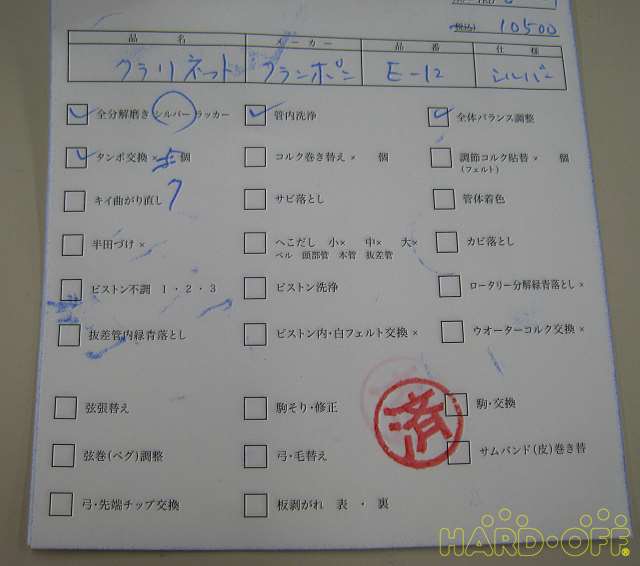 税込 10500
品名 メーカー 品番 仕様
クラリネット クランポン E-12 シルバー
全分解磨き シルバー ラッカー 管内洗浄 全体バランス調整
タンポ交換× 個 コルク巻き替え× 個 調節コルク貼替× 個
(フェルト)
キイ曲がり直し サビ落とし 管体着色
半田づけ× へこだし 小× 中× 大× カビ落とし
ベル 頭部管 本管 抜差管
ピストン不調 1・2・3 ピストン洗浄 ロータリー分解緑青落とし×
抜差管内緑青落とし ピストン内・白フェルト交換× ウオーターコルク交換×
弦張替え 駒そり・修正 駒・交換
済
弦巻(ペグ)調整 弓・毛替え サムバンド(皮)巻き替
弓・先端チップ交換 板剥がれ 表・裏
HARD・OFF